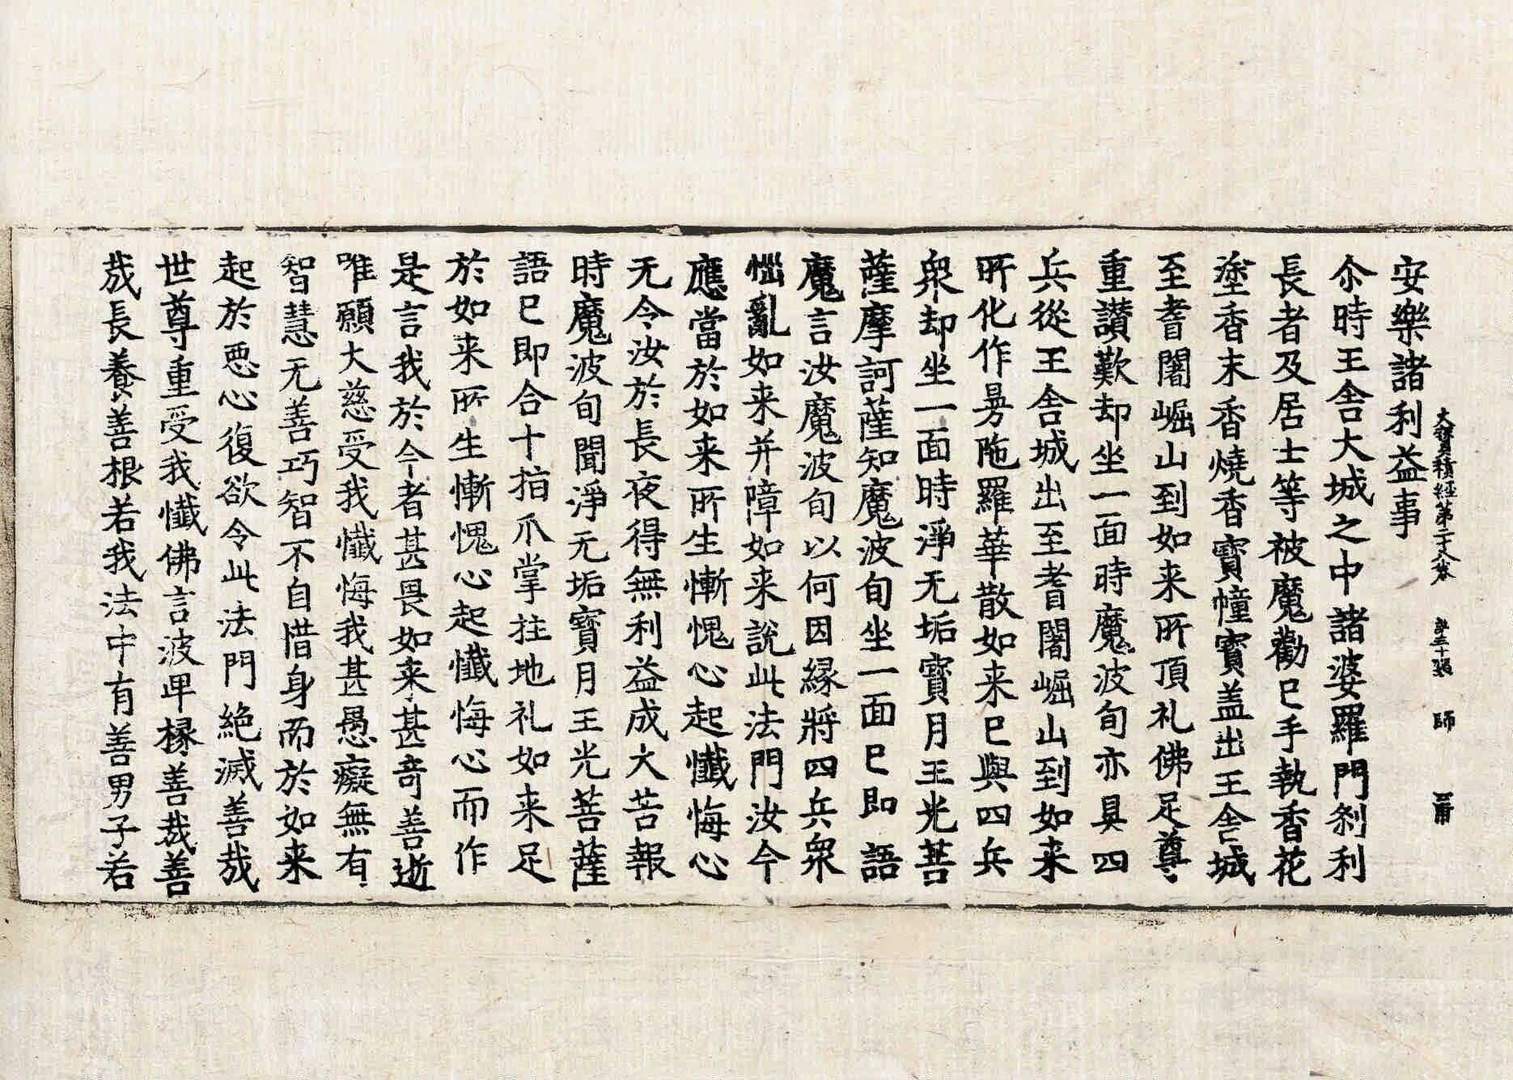 大寶積經第二十八卷 第三十張 師
安樂諸利益事
尒時王舍大城之中諸婆羅門刹利
長者及居士等被魔勸已手執香花
塗香末香燒香寶幢寶盖出王舍城
至耆闍崛山到如来所頂礼佛足尊
重讃歎却坐一面時魔波旬亦具四
兵從王舍城出至耆闍崛山到如来
所化作曼陁羅華散如来已與四兵
衆却坐一面時淨无垢寶月王光菩
薩摩訶薩知魔波旬坐一面已即語
魔言汝魔波旬以何因縁將四兵衆
惱亂如来并障如来說此法門汝今
應當於如来所生慚愧心起懺悔心
无令汝於長夜得無利益成大苦報
時魔波旬聞淨无垢寶月王光菩薩
語已即合十指爪掌拄地礼如来足
於如来所生慚愧心起懺悔心而作
是言我於今者甚畏如来甚奇善逝
唯願大慈受我懺悔我甚愚癡無有
智慧无善巧智不自惜身而於如来
起於惡心復欲令此法門絶滅善哉
世尊重受我懺佛言波卑掾善哉善
哉長養善根若我法中有善男子若